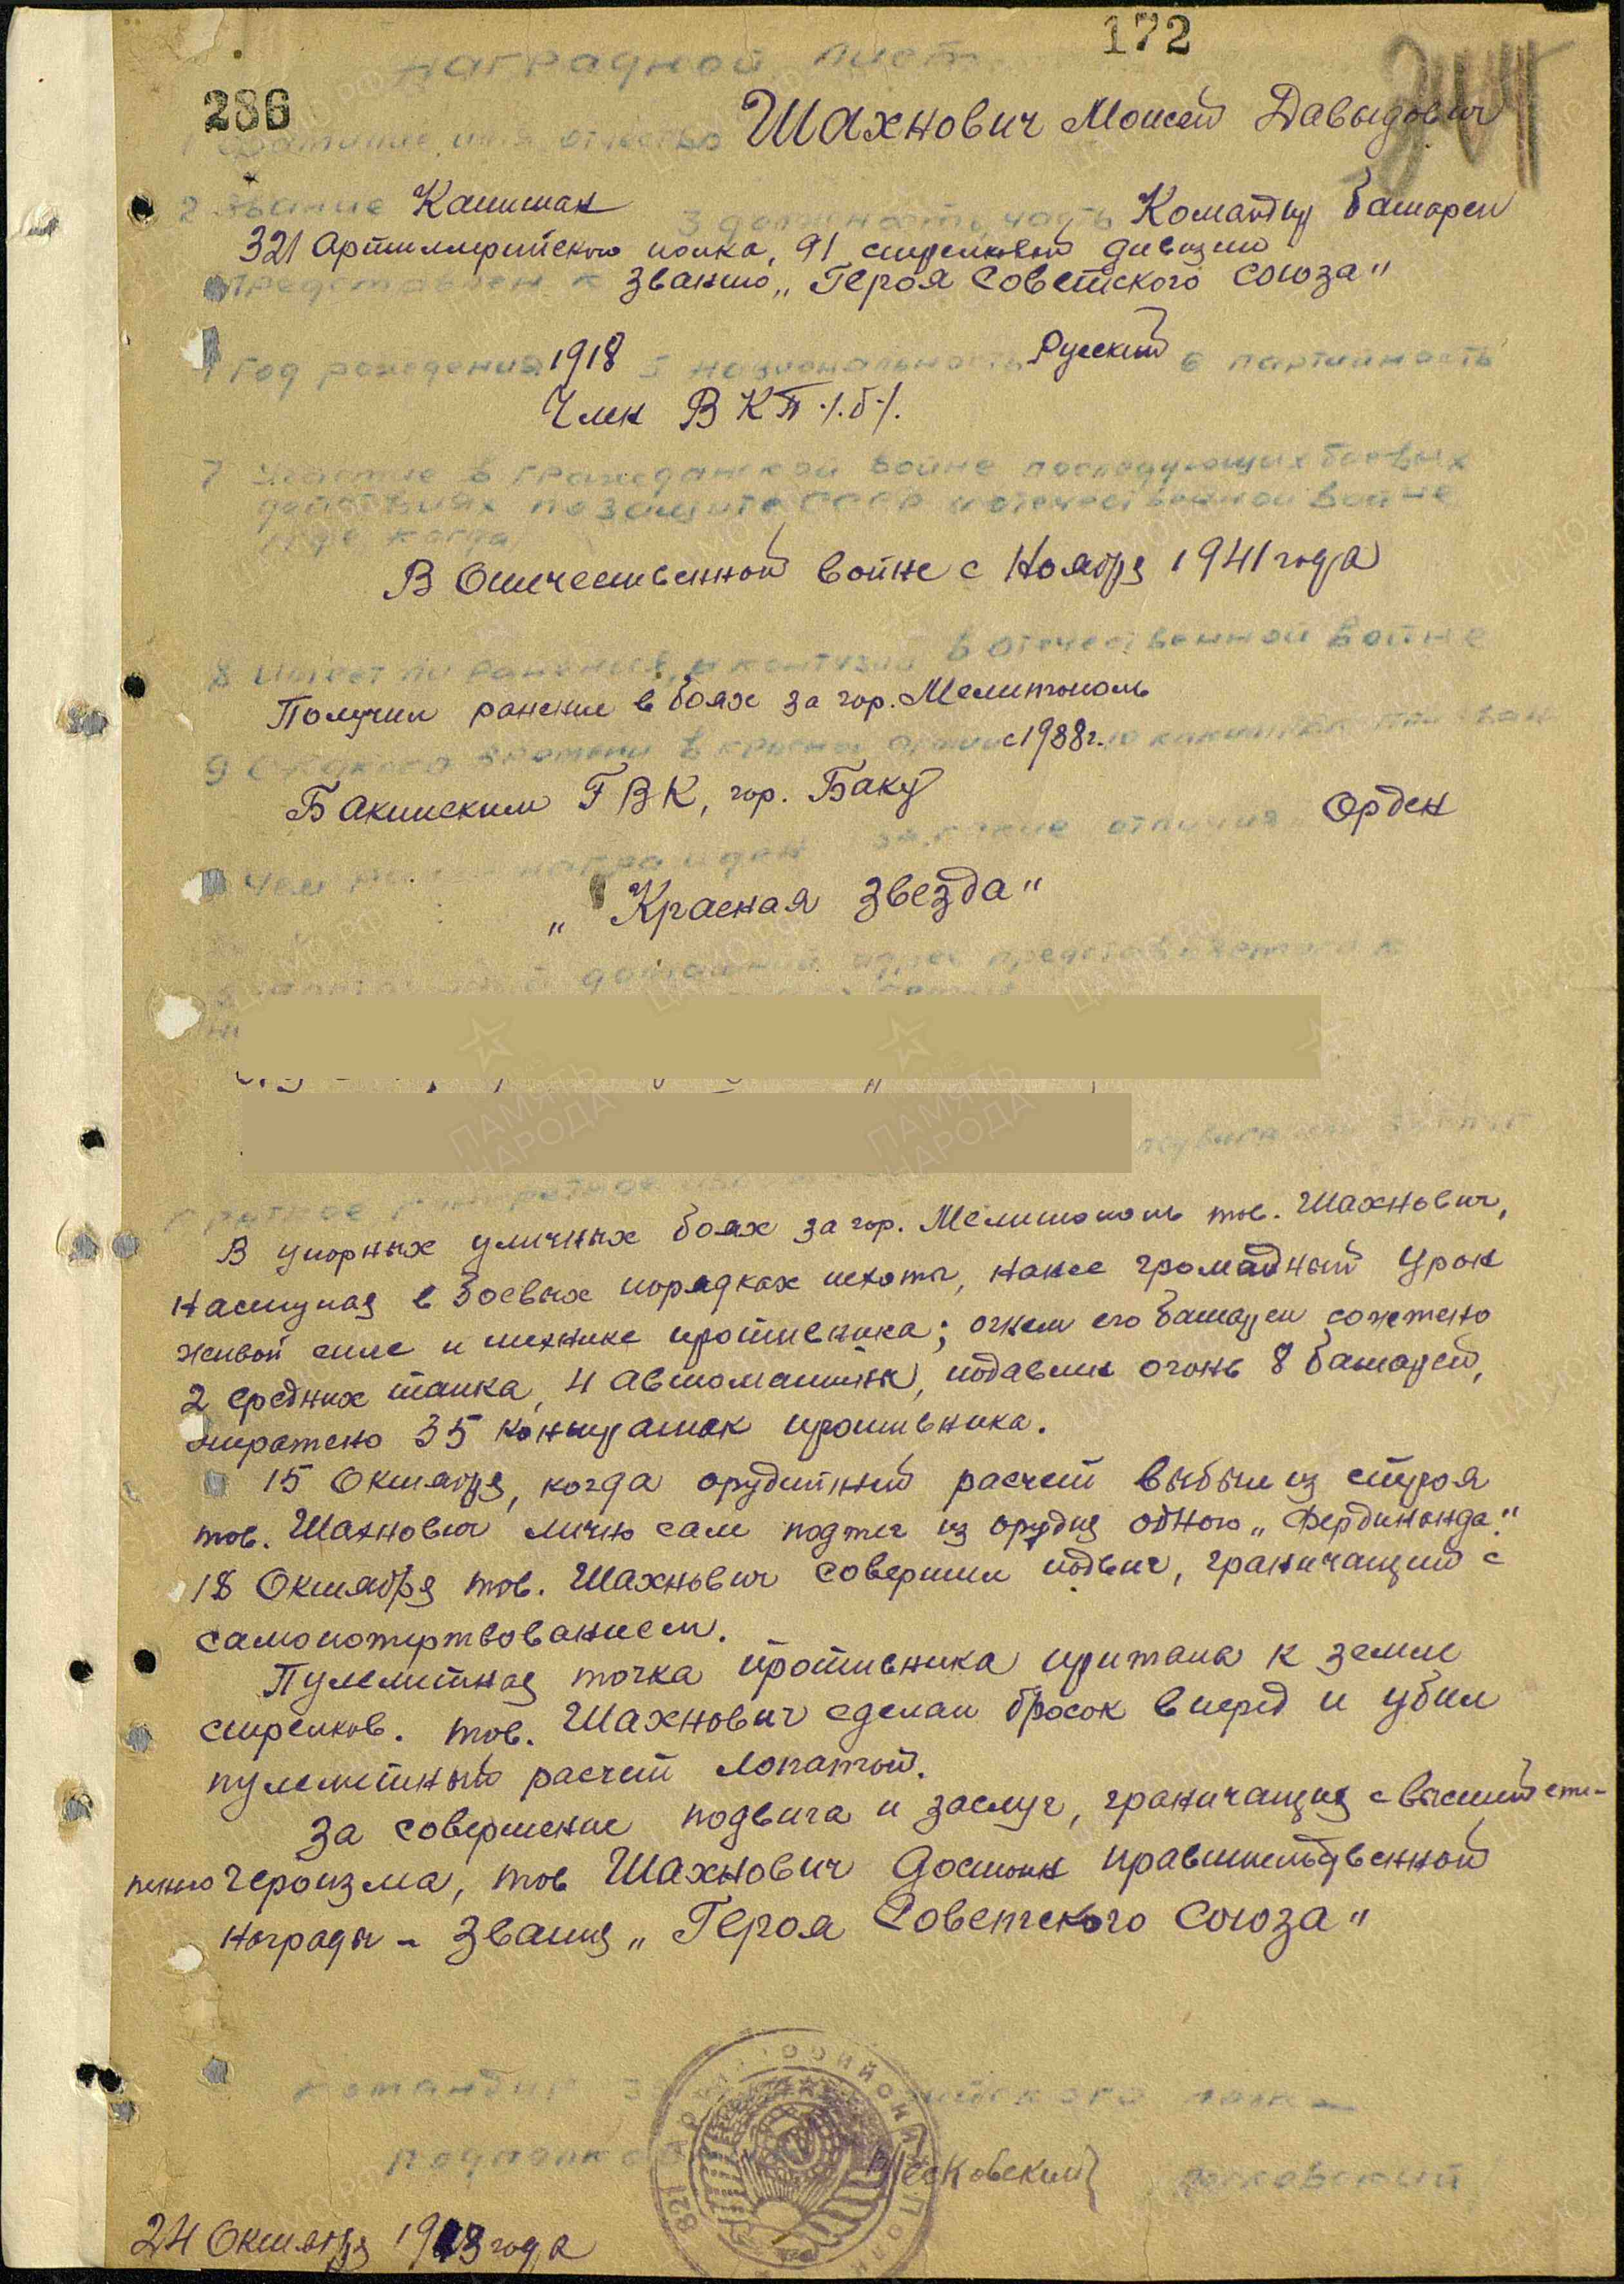 172
наградной лист
286
фамилия, имя отчество Шахнович Моисей Давыдович
2 Звание Капитан 3 должность, часть Командир батареи
321 Артиллерийского полка, 91 стрелковой дивизии
Представлен к званию „Героя Советского Союза“
4 Год рождения 1918 5 национальность Русский 6 партийность
Член ВКП ./.б./.
7 Участие в гражданской войне последующих боевых
действиях по защите СССР и отечественной войне
где, когда
В Отечественной войне с Ноября 1941 года
8 Имеет ли ранения и контузии в отечественной войне
Получил ранение в боях за гор. Мелитополь
9 С какого времени в красной армии с 1938 г. 10 каким РВК призван
Бакинским ГВК, гор. Баку
Чем награжден за какие отличия Орден
„Красная звезда“
домашний адрес представляемого к
Краткое конкретное
В упорных уличных боях за гор. Мелитополь тов. Шахнович,
наступая в боевых порядках пехоты, нанес громадный урон
живой силе и технике противника; огнем его батареи сожжено
2 средних танка, 4 автомашины, подавлен огонь 8 батарей,
отражено 35 контратак противника.
15 Октября, когда орудийный расчет выбыл из строя
тов. Шахнович лично сам поджег из орудия одного „Фердинанда.“
18 Октября тов. Шахнович совершил подвиг, граничащий с
самопожертвованием.
Пулеметная точка противника прижала к земле
стрелков. тов. Шахнович сделал бросок вперед и убил
пулеметный расчет лопатой.
За совершение подвига и заслуг, граничащих с высшей сте-
пенью героизма, тов Шахнович достоин правительственной
награды - звания „Героя Советского Союза“
Командир полка
подполковник
24 Октября 1943 года
ПАМЯТЬ НАРОДА
ПАМЯТЬ НАРОДА